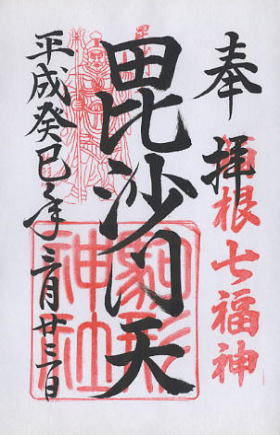 奉拝
箱根七福神
毘沙門天
駒形神社
平成癸巳年三月廿二日